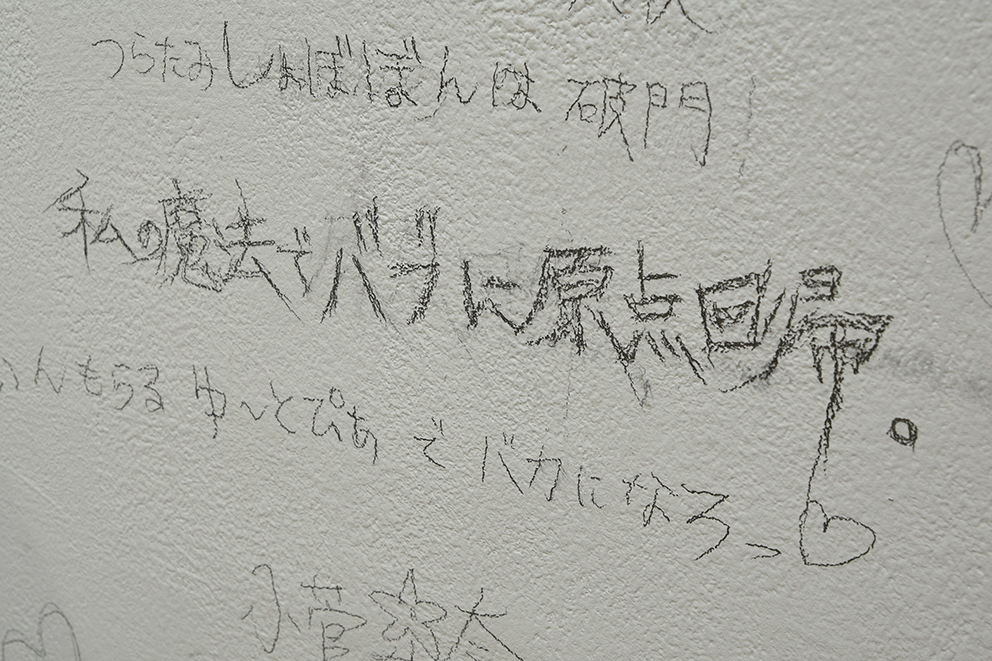 つらたみしょぼぼんは 破門
私の魔法でバブに原点回帰。
んもらる ゆ〜とぴあ で バカになろっ
小菅 太